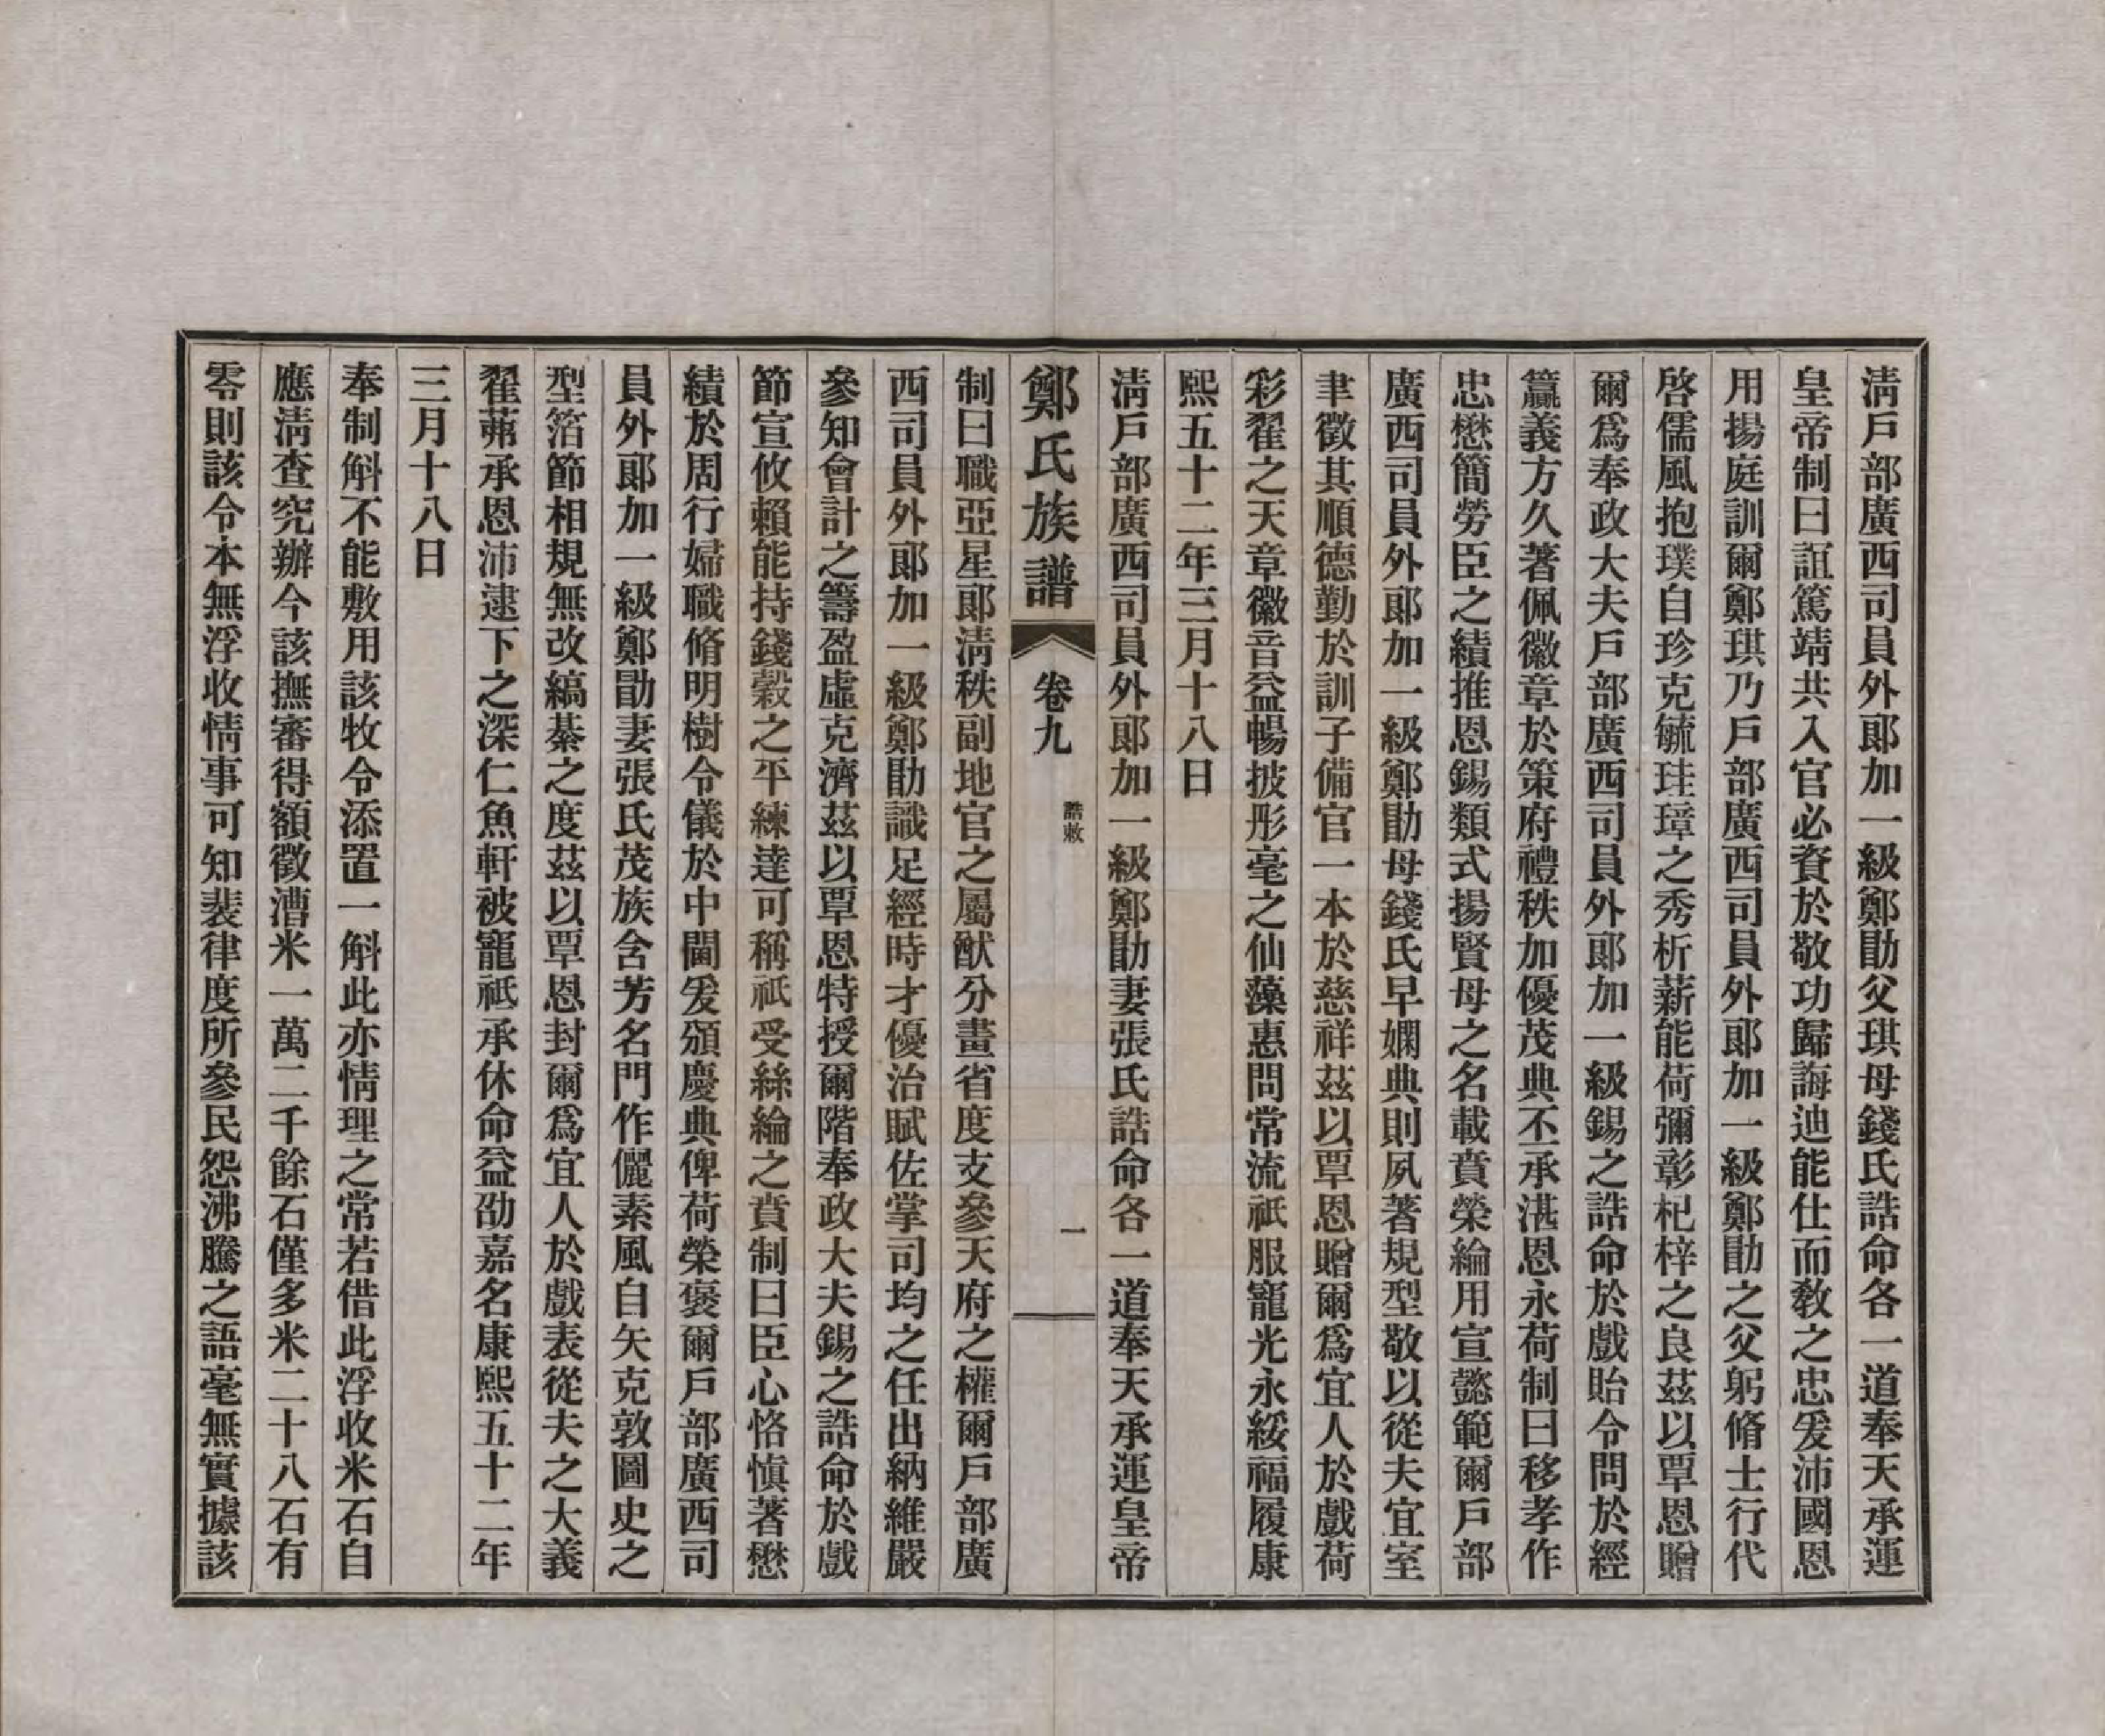 淸戶部廣西司員外郎加一級鄭勛父琪母錢氏誥命各一道奉天承運
皇帝制曰誼篤靖共入官必資於敬功歸誨迪能仕而敎之忠爰沛國恩
用揚庭訓爾鄭琪乃戶部廣西司員外郎加一級鄭勛之父躬脩士行代
啓儒風抱璞自珍克毓珪璋之秀析薪能荷彌彰杞梓之良茲以覃恩贈
爾爲奉政大夫戶部廣西司員外郎加一級錫之誥命於戲貽令問於經
籯義方久著佩徽章於策府禮秩加優茂典丕承湛恩永荷制曰移孝作
忠懋簡勞臣之績推恩錫類式揚賢母之名載賁榮綸用宣懿範爾戶部
廣西司員外郎加一級鄭勛母錢氏早嫻典則夙著規型敬以從夫宜室
聿徵其順德勤於訓子備官一本於慈祥茲以覃恩贈爾爲宜人於戲荷
彩翟之天章徽音益暢披彤毫之仙藻惠問常流祇服寵光永綏福履康
熙五十二年三月十八日
淸戶部廣西司員外郎加一級鄭勛妻張氏誥命各一道奉天承運皇帝
鄭氏族譜 卷九 誥敕 一
制曰職亞星郎淸秩副地官之屬猷分畫省度支參天府之權爾戶部廣
西司員外郎加一級鄭勛識足經時才優治賦佐掌司均之任出納維嚴
參知會計之籌盈虛克濟茲以覃恩特授爾階奉政大夫錫之誥命於戲
節宣攸賴能持錢穀之平練達可稱祇受絲綸之賁制曰臣心恪愼著懋
績於周行婦職脩明樹令儀於中閫爰頒慶典俾荷榮褒爾戶部廣西司
員外郎加一級鄭勛妻張氏茂族含芳名門作儷素風自矢克敦圖史之
型箔節相規無改縞綦之度茲以覃恩封爾爲宜人於戲表從夫之大義
翟茀承恩沛逮下之深仁魚軒被寵祇承休命益劭嘉名康熙五十二年
三月十八日
奉制斛不能敷用該牧令添置一斛此亦情理之常若借此浮收米石自
應淸查究辦今該撫審得額徵漕米一萬二千餘石僅多米二十八石有
零則該令本無浮收情事可知裴律度所參民怨沸騰之語毫無實據該